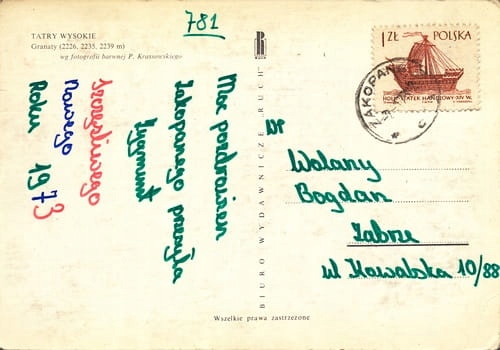 781
TATRY WYSOKIE
Granaty (2226, 2235, 2239 m)
wg fotografii barwnej P. Krassowskiego
Szczęśliwego
Nowego
Roku 1973
Moc pozdrowień
Zakopanego przesyła
Zygmunt
BIURO WYDAWNICZE „RUCH"
RUCH
1 ZŁ POLSKA
HOLK-STATEK HANDLOWY-XIV W.
ZAKOPANE
WP
Wolany
Bogdan
Zabrze
ul Kowalska 10/88
Wszelkie prawa zastrzeżone